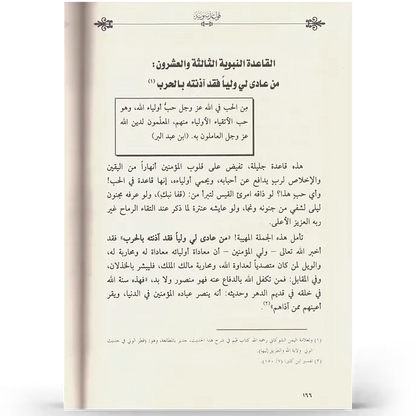 قواعد نبوية
القاعدة النبوية الثالثة والعشرون:
من عادى لي ولياً فقد آذنته بالحرب (١)
مِن الحب في الله عز وجل حبُّ أولياء الله، وهو
حب الأتقياء الأولياء منهم، المعلِّمون لدين الله
عز وجل العاملون به. (ابن عبد البر)
هذه قاعدة جليلة، تفيض على قلوب المؤمنين أنهاراً من اليقين
والإخلاص لربٍ يدافع عن أحبابه، ويحمي أولياءه، إنها قاعدة في الحب!
وأي حبٍ هذا؟ لو ذاقه امرئ القيس لتبرأ من: (قفا نبكِ)، ولو عرفه مجنون
ليلى لشفي من جنونه ونجا، ولو عايشه عنترة لما ذكر عند التقاء الرماح غير
ربه العزيز الأعلى.
تأمل هذه الجملة المهيبة! «من عادى لي ولياً فقد آذنته بالحرب» فقد
أخبر الله تعالى – ولي المؤمنين – أن معاداة أوليائه معاداة له ومحاربة له،
والويل لمن كان متصدياً لعداوة الله، ومحاربة مالك الملك، فليبشر بالخذلان،
وفي المقابل: فمن تكفل الله بالدفاع عنه فهو منصور ولا بد، «فهذه سنة الله
في خلقه في قديم الدهر وحديثه: أنه ينصر عباده المؤمنين في الدنيا، ويقر
أعينهم ممن آذاهم»(٢).
(١) ولعلامة اليمن الشوكاني رحمه الله كتاب قيم في شرح هذا الحديث، جدير بالمطالعة، وهو: (قطر الولي في حديث
الولي
(٢) تفسير ابن كثير: (٧/ ١٥٠).
١٦٦